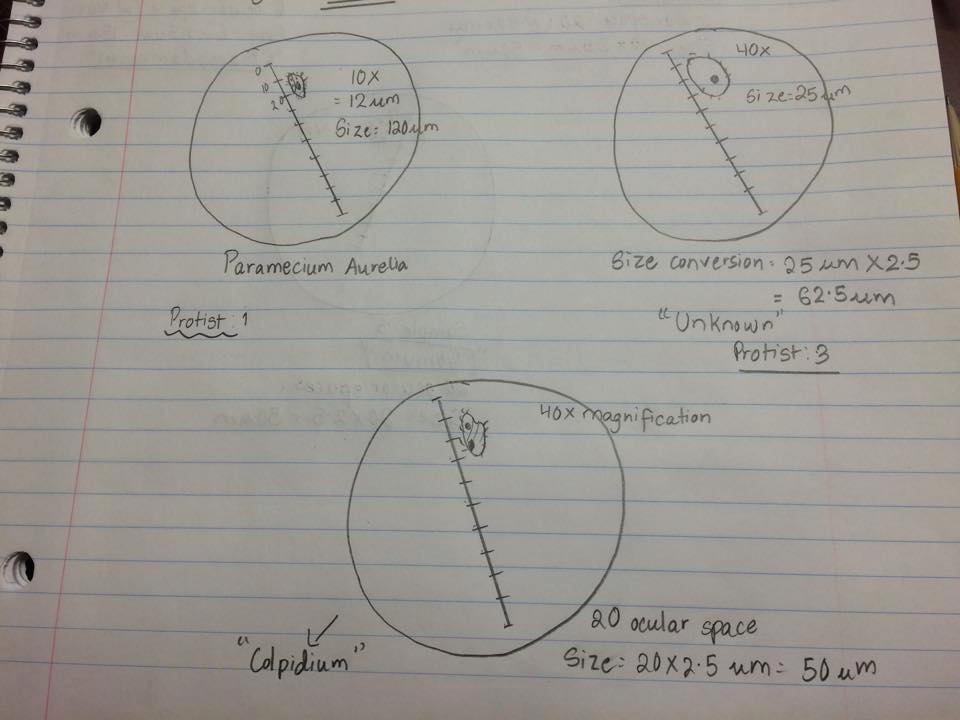 0
10
20
10x
= 12 um
Size: 120um
Paramecium Aurelia
Protist: 1
40x
Size=25um
Size conversion: 25 um X 2.5
= 62.5um
"Unknown"
Protist: 3
40x magnification
20 ocular space
Size: 20X2.5 um= 50 um
"Colpidium"